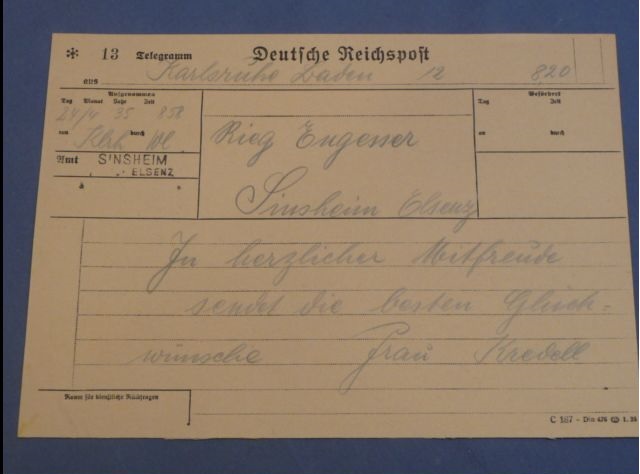 * 13 Telegramm Deutsche Reichspost
aus Karlsruhe Baden 12 8,20
Aufgenommen
Tag Monat Jahr Zeit
24/4 35 858
von Klrh durch
Amt SINSHEIM
ELSENZ
Befördert
Tag Zeit
an durch
Rieg Engesser
Sinsheim Elsenz
In herzlicher Mitfreude
sendet die besten Glück-
wünsche Frau Kredell
Raum für dienstliche Rückfragen
C 187 - Din 476